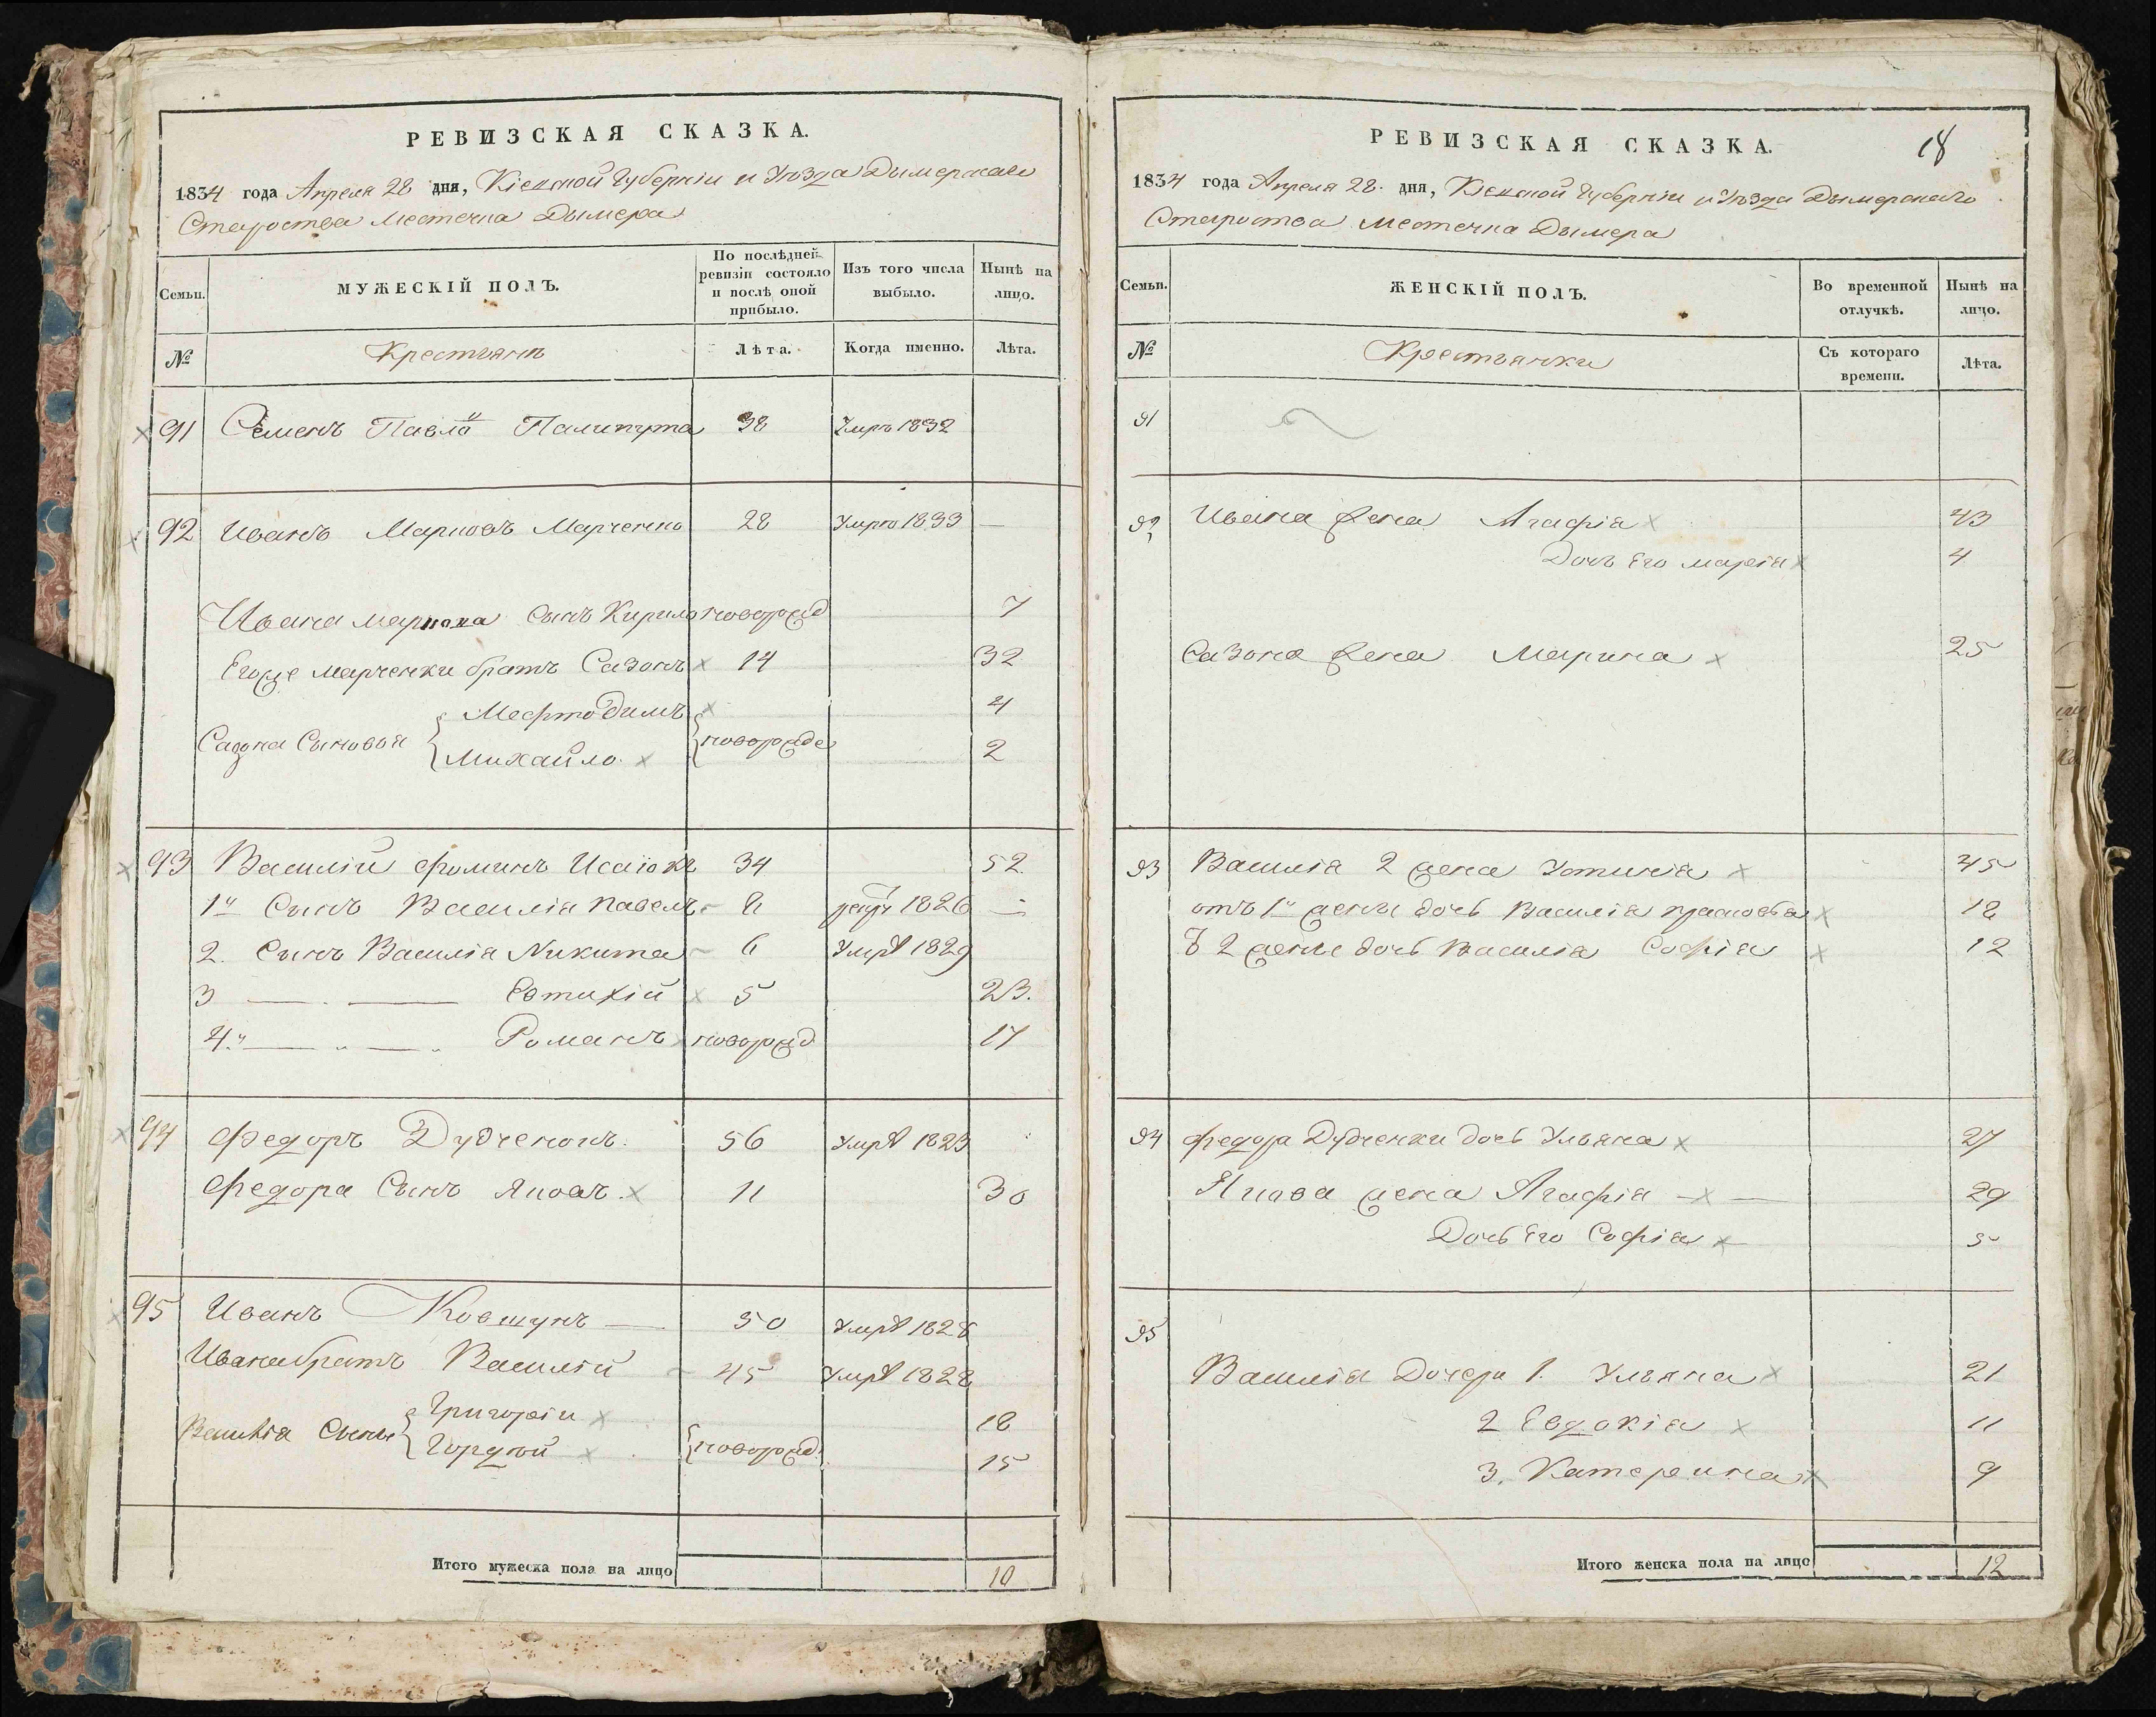 РЕВИЗСКАЯ СКАЗКА.
1834 года Апреля 28 дня, Кіевской Губерніи и Уѣзда Дымерскаго
Староства Местечка Дымера
Семьи.
МУЖЕСКІЙ ПОЛЪ.
По послѣдней ревизіи состояло и послѣ оной прибыло.
Изъ того числа выбыло.
Нынѣ на лицо.
№
Крестьянъ
Лѣта.
Когда именно.
Лѣта.
91 Семенъ Павла Палипута 38 Умръ 1832
92 Иванъ Марковъ Марченко 28 Умръ 1833 —
Ивана Маркова Сынъ Кирило новорожд 7
Егоже Марченки братъ Сазонъ 14 32
Мефтодимъ 4
Сазона Сыновья новорожде
Михайло 2
93 Василій Фоминъ Исаюкъ 34 52.
1й Сынъ Василія Павелъ 8 рекр 1826 —
2. Сынъ Василія Никита 6 Умръ 1829
3 — — Евтихій 5 23.
4й — „ — „ Романъ новорожд 17
94 Федоръ Дудченокъ. 56 Умръ 1823
Федора Сынъ Яковъ. 11 30
95 Иванъ Ковтунъ — 50 Умръ 1828
Ивана братъ Василій 45 Умръ 1828
Григорій 18
Василія Сыны новорожд
Гордѣй 15
Итого мужеска пола на лицо 10
18
РЕВИЗСКАЯ СКАЗКА.
1834 года Апреля 28. дня, Кіевской Губерніи и Уѣзда Дымерскаго
Староства Местечка Дымера
Семьи.
ЖЕНСКІЙ ПОЛЪ.
Во временной отлучкѣ.
Нынѣ на лицо.
№
Крестьянки
Съ котораго времени.
Лѣта.
91
92 Ивана жена Агафія 43
Дочь Его Марія 4
Сазона жена Марина 25
93 Василія 2 жена Устинія 45
отъ 1й жены дочь Василія Прасковья 18
Ѿ 2 жены дочь Василія Софія 12
94 Федора Дудченки дочь Ульяна 27
Якова жена Агафія — 29
Дочь Его Софія 5
95
Василія Дочери 1. Ульяна 21
2 Евдокія 11
3. Катерина 9
Итого женска пола на лицо 12